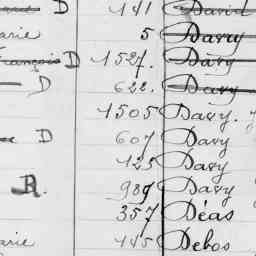 D 141 David
arie 5 Davy
François D 1527. Davy
D 622. Davy
1505 Davy.
D 607 Davy
125 Davy
R. 989 Davy
357 Déas
arie 445 Debos